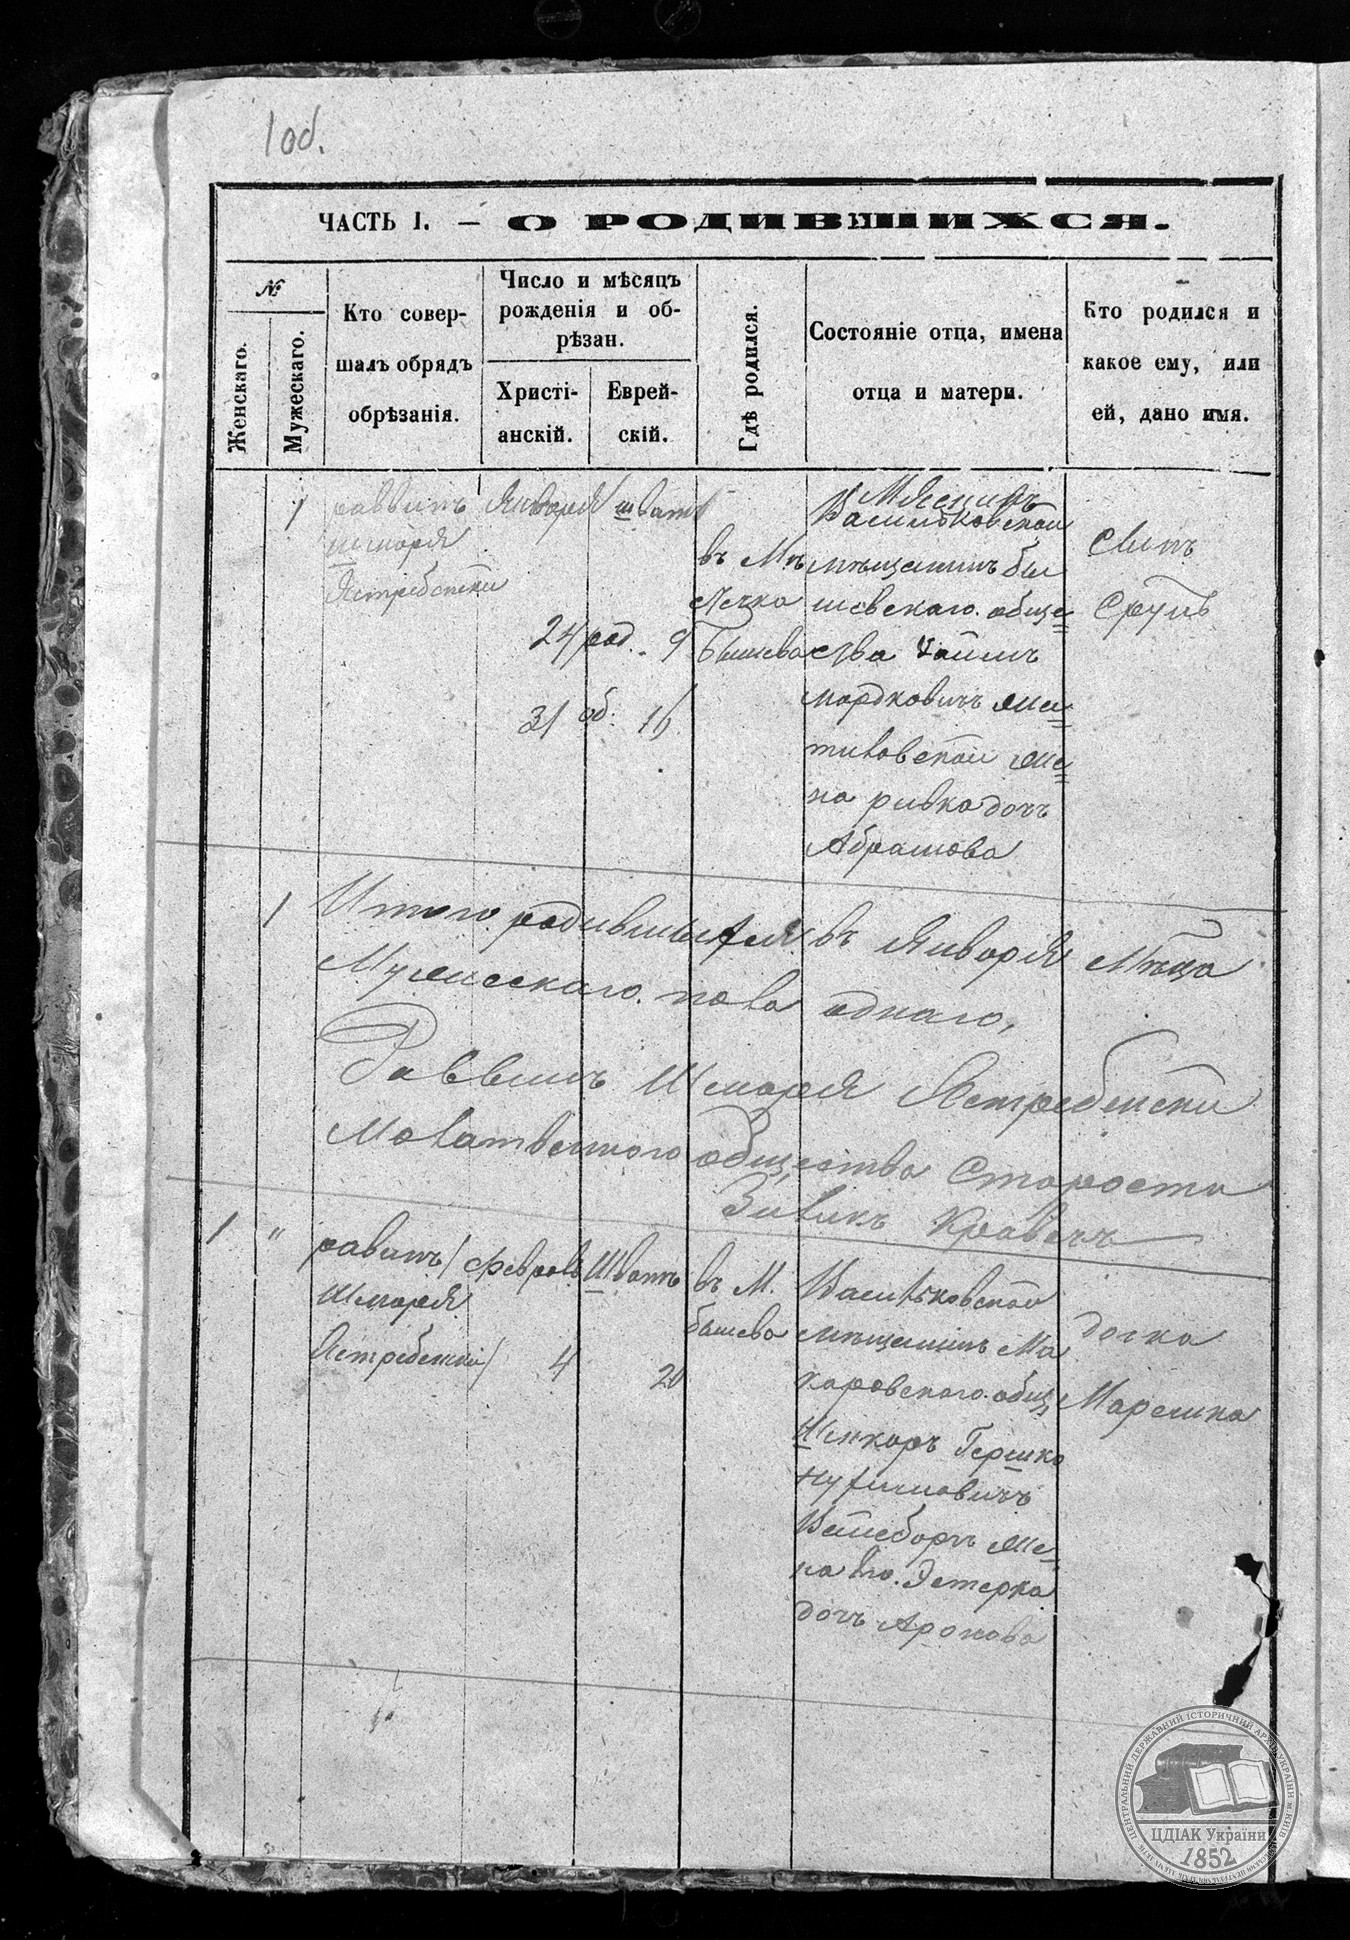 1 об.
ЧАСТЬ I. — О РОДИВШИХСЯ.
№
Женскаго.
Мужескаго.
Кто совер-
шалъ обрядъ
обрѣзанія.
Число и мѣсяцъ
рожденія и об-
рѣзан.
Христі-
анскій.
Еврей-
скій.
Гдѣ родился.
Состояніе отца, имена
отца и матери.
Кто родился и
какое ему, или
ей, дано имя.
1
раввинъ
шмаря
Ястребски
Января
24 род.
31 об.
шватъ
9
16
въ Мѣ
стечка
Бышева
Васильковской
мѣщанинъ бы
шевскаго обще=
ства Хаимъ
мордковичъ
жe=
на ривка дочъ
Абрамова
Сынъ
Сруль
1 Итого родившихся въ Января Мѣца
Мужескаго пола однаго,
Раввинъ Шмаря Ястребски
Молатвенного общества Староста
Зивикъ Кравецъ
1 "
равинъ
Шмаря
Ястребский
Февраль
4
Шватъ
20
въ М.
бышева
Васильковской
мѣщанинъ Ма
каровского общ.
Гершко
Вайсборъ же=
на его Эстерка
дочъ Аронова
дочка
Маремка
ЦЕНТРАЛЬНИЙ ДЕРЖАВНИЙ ІСТОРИЧНИЙ АРХІВ УКРАЇНИ М.КИЇВ
ЦДІАК України
1852